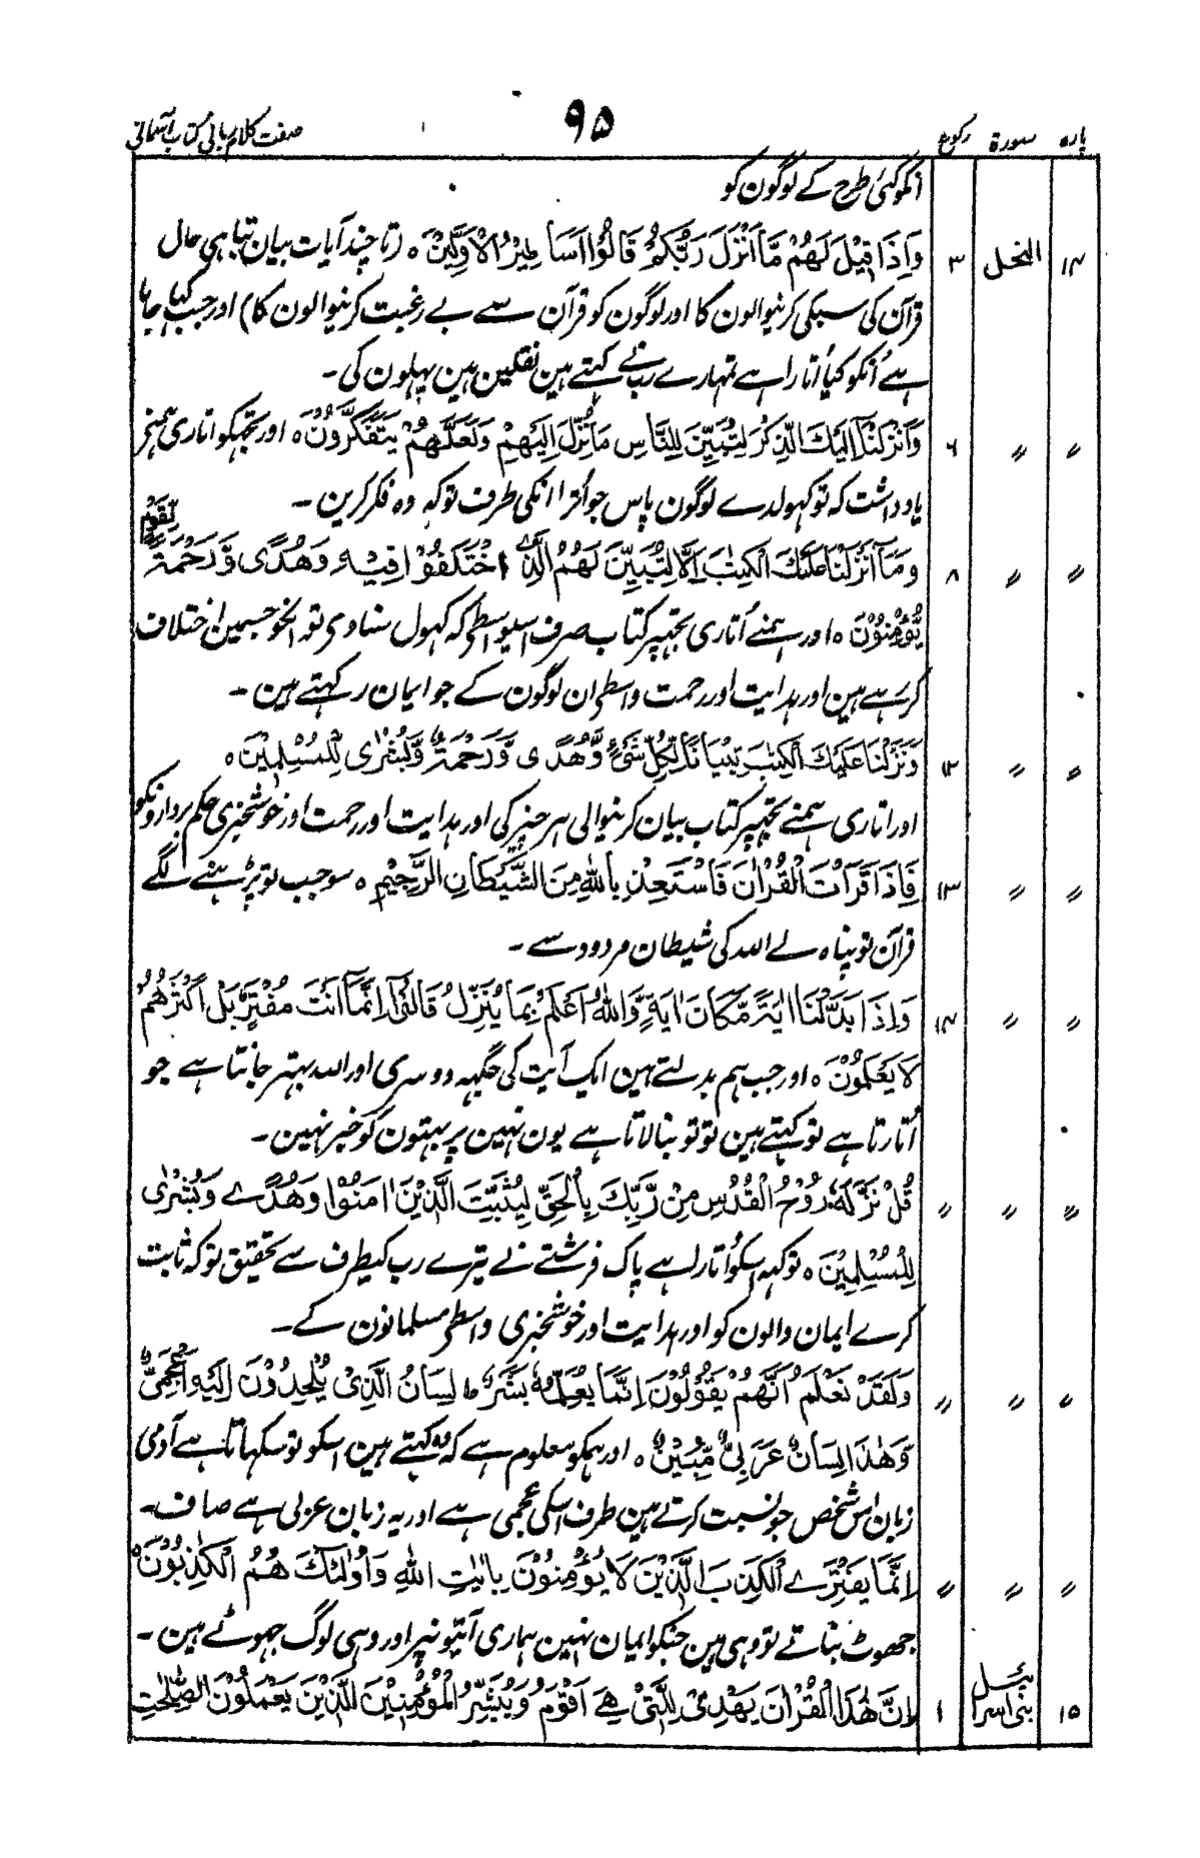 پارہ سورۃ رکوع ۹۵ صفت کلام ربانی کتاب آسمانی
انکو کئی طرح کے لوگون کو
۱۴ النحل ۳ وَاِذَا قِيْلَ لَهُمْ مَّا اَنْزَلَ رَبُّكُمْ قَالُوْا اَسَاطِيْرُ الْاَوَّلِيْنَ ہ (تا چند آیات بیان تباہی حال
قرآن کی سبکی کرنیوالون کا اور لوگون کو قرآن سے بے رغبت کرنیوالون کا) اور جب کہا جاتا
ہے اُنکو کیا اُتارا ہے تمہارے رب نے کہتے ہین نقلین ہین پہلون کی ۔
〃 〃 ۶ وَاَنْزَلْنَا اِلَيْكَ الذِّكْرَ لِتُبَيِّنَ لِلنَّاسِ مَا نُزِّلَ اِلَيْهِمْ وَلَعَلَّهُمْ يَتَفَكَّرُوْنَ ہ اور تجھکو اتاری ہمنے
یادداشت کہ تو کھولدے لوگون پاس جو اُترا انکی طرف تو کہ وہ فکر کرین ۔
〃 〃 ۸ وَمَا اَنْزَلْنَا عَلَيْكَ الْكِتٰبَ اِلَّا لِتُبَيِّنَ لَهُمُ الَّذِى اخْتَلَفُوْا فِيْهِ وَهُدًى وَّرَحْمَةً لِّقَوْمٍ
يُّؤْمِنُوْنَ ہ اور ہمنے اُتاری تجھپر کتاب صرف اسیواسطے کہ کھول سناوی تو انکو جسمین اختلاف
کر رہے ہین اور ہدایت اور رحمت واسطے ان لوگون کے جو ایمان رکھتے ہین ۔
〃 〃 ۱۲ وَنَزَّلْنَا عَلَيْكَ الْكِتٰبَ تِبْيَانًا لِّكُلِّ شَيْءٍ وَّهُدًى وَّرَحْمَةً وَّبُشْرٰى لِلْمُسْلِمِيْنَ ہ
اور اتاری ہمنے تجھپر کتاب بیان کرنیوالی ہر چیز کی اور ہدایت اور رحمت اور خوشخبری حکم بردارونکو
〃 〃 ۱۳ فَاِذَا قَرَاْتَ الْقُرْاٰنَ فَاسْتَعِذْ بِاللّٰهِ مِنَ الشَّيْطَانِ الرَّجِيْمِ ہ سو جب تو پڑہنے لگے
قرآن تو پناہ لے اللہ کی شیطان مردود سے ۔
〃 〃 ۱۴ وَاِذَا بَدَّلْنَا اٰيَةً مَّكَانَ اٰيَةٍ وَّاللّٰهُ اَعْلَمُ بِمَا يُنَزِّلُ قَالُوْا اِنَّمَا اَنْتَ مُفْتَرٍ بَلْ اَكْثَرُهُمْ
لَا يَعْلَمُوْنَ ہ اور جب ہم بدلتے ہین ایک آیت کی جگہہ دوسری اور اللہ بہتر جانتا ہے جو
اُتارتا ہے تو کہتے ہین تو تو بنا لاتا ہے یون نہین پر بہتون کو خبر نہین ۔
〃 〃 〃 قُلْ نَزَّلَهٗ رُوْحُ الْقُدُسِ مِنْ رَّبِّكَ بِالْحَقِّ لِيُثَبِّتَ الَّذِيْنَ اٰمَنُوْا وَهُدًے وَّبُشْرٰى
لِلْمُسْلِمِيْنَ ہ تو کہہ اسکو اُتارا ہے پاک فرشتے نے تیرے رب کیطرف سے تحقیق تو کہ ثابت
کرے ایمان والون کو اور ہدایت اور خوشخبری واسطے مسلمانون کے ۔
〃 〃 〃 وَلَقَدْ نَعْلَمُ اَنَّهُمْ يَقُوْلُوْنَ اِنَّمَا يُعَلِّمُهٗ بَشَرٌ ط لِسَانُ الَّذِىْ يُلْحِدُوْنَ اِلَيْهِ اَعْجَمِىٌّ
وَّهٰذَا لِسَانٌ عَرَبِىٌّ مُّبِيْنٌ ہ اور ہمکو معلوم ہے کہ وہ کہتے ہین اسکو تو سکھاتا ہے آدمی
زبان اُس شخص جو نسبت کرتے ہین طرف اسکی عجمی ہے اور یہ زبان عربی ہے صاف ۔
〃 〃 〃 اِنَّمَا يَفْتَرِے الْكَذِبَ الَّذِيْنَ لَا يُؤْمِنُوْنَ بِاٰيٰتِ اللّٰهِ وَاُولٰئِكَ هُمُ الْكٰذِبُوْنَ ہ
جھوٹ بناتے تو وہی ہین جنکو ایمان نہین ہماری آیتونپر اور وہی لوگ جھوٹے ہین ۔
۱۵ بنی اسرائیل ۱ اِنَّ هٰذَا الْقُرْاٰنَ يَهْدِىْ لِلَّتِىْ هِىَ اَقْوَمُ وَيُبَشِّرُ الْمُؤْمِنِيْنَ الَّذِيْنَ يَعْمَلُوْنَ الصّٰلِحٰتِ